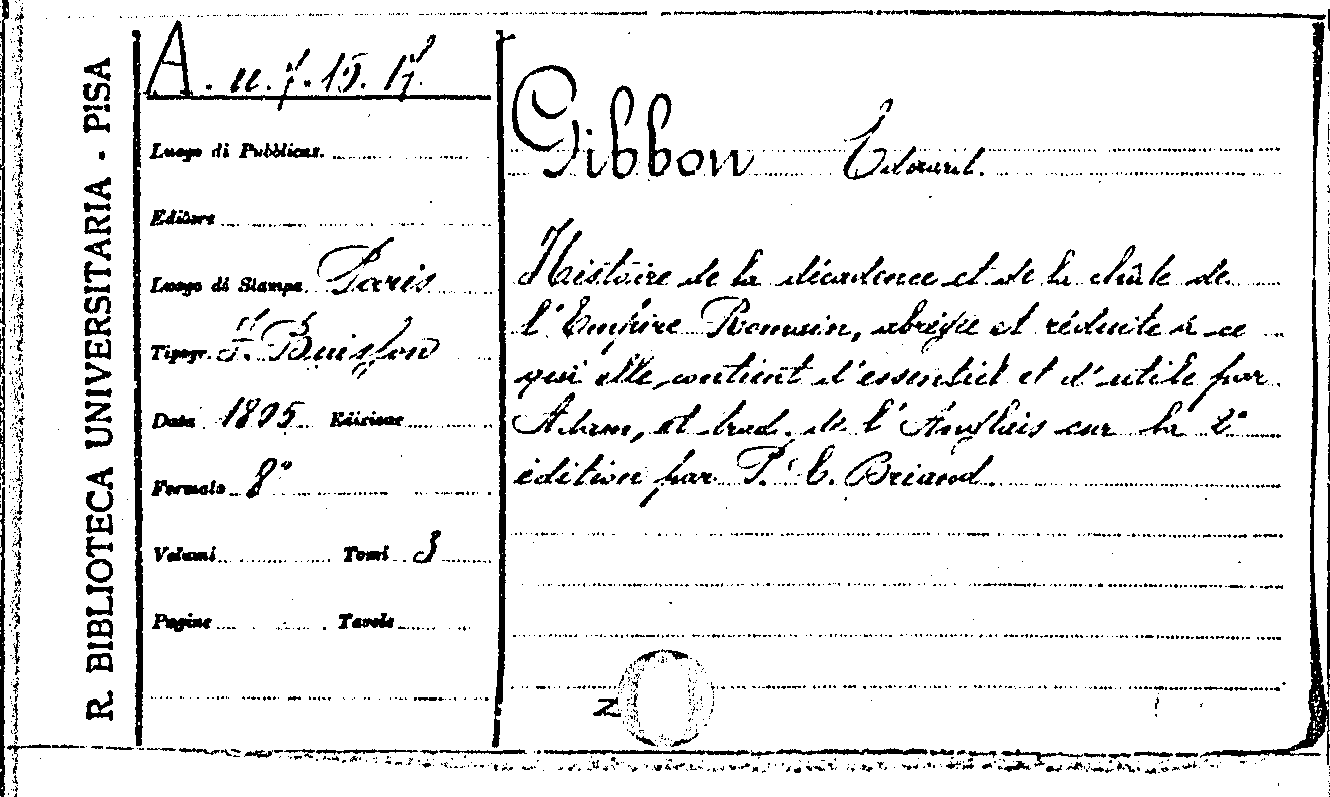 R. BIBLIOTECA UNIVERSITARIA - PISA
A. u. 7. 15. 17
Luogo di Pubblicaz.
Editore
Luogo di Stampa Paris
Tipogr. F. Buisson
Data 1805 Edizione
Formato 8°
Volumi Tomi 3
Pagine Tavole
Gibbon Edouard.
Histoire de la décadence et de la chûte de
l'Empire Romain, abregée et réduite à ce
qui elle contient d'essentiel et d'utile par
Adam, et trad. de l'Anglais sur la 2°
édition par P. C. Briand.
N